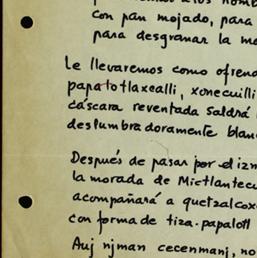 con pan mojado, para
para desgranar la ma
Le llevaremos como ofrend
papalotlaxcalli, xonecuilli
cáscara reventada saldrá
deslumbradoramente blanc
Después de pasar por el izm
la morada de Mictlantecu
acompañará a quetzalcox
con forma de tiza-papalotl
Auj njman cecenmanj, no